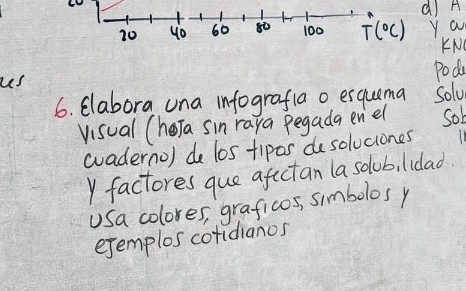 20 40 60 80 100 T(°C)
6. Elabora una infografia o esquema
visual (hoja sin raya pegada en el
cuaderno) de los tipos de soluciones
y factores que afectan la solubilidad.
Usa colores, graficos, simbolos y
ejemplos cotidianos
d) A
y cu
KNO